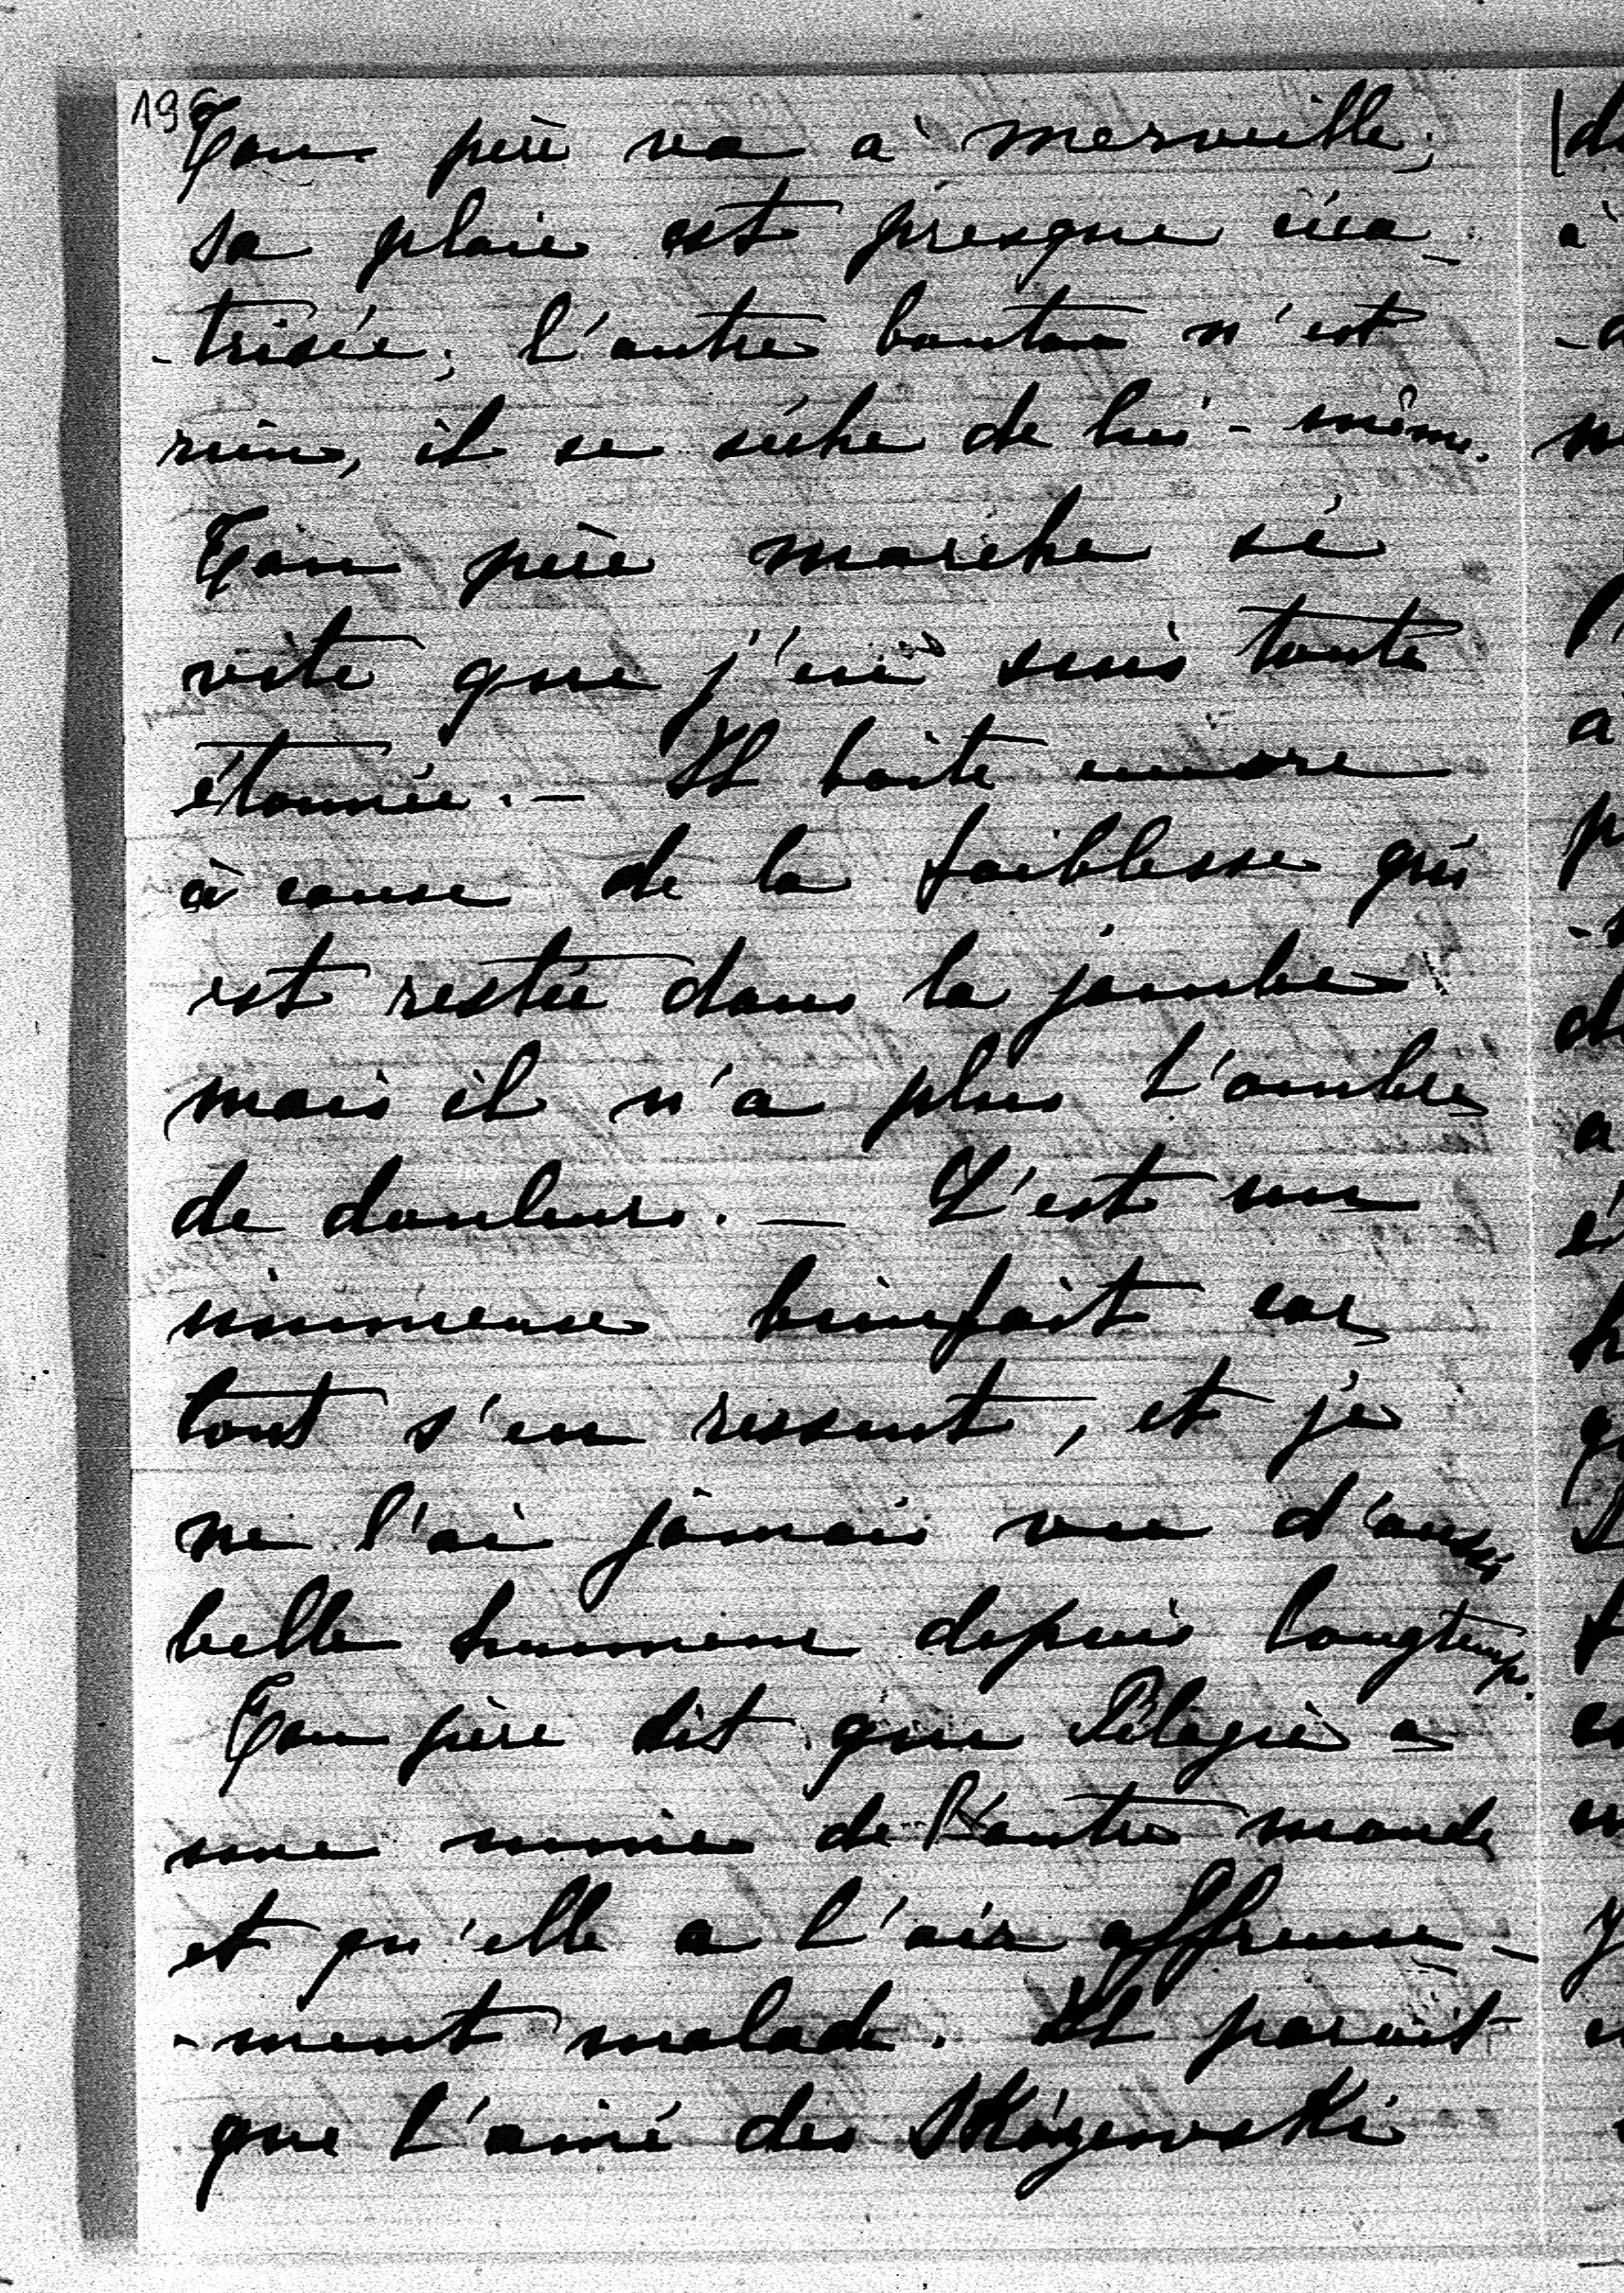 196
Ton père va à merveille;
sa plaie est presque cica-
-trisée; l'autre bouton n'est
rien, il se sèche de lui-même.
Ton père marche si
vite que j'en suis toute
étonnée. — Il boite encore
à cause de la faiblesse qui
est restée dans la jambe
mais il n'a plus l'ombre
de douleurs. — C'est un
immense bienfait car
tout s'en ressent, et je
ne l'ai jamais vu d'aussi
belle humeur depuis longtemps.
Ton père dit que Pélagie a
une mine de l'autre monde
et qu'elle a l'air affreuse-
-ment malade. Il paraît
que l'ainé des Skórzewski